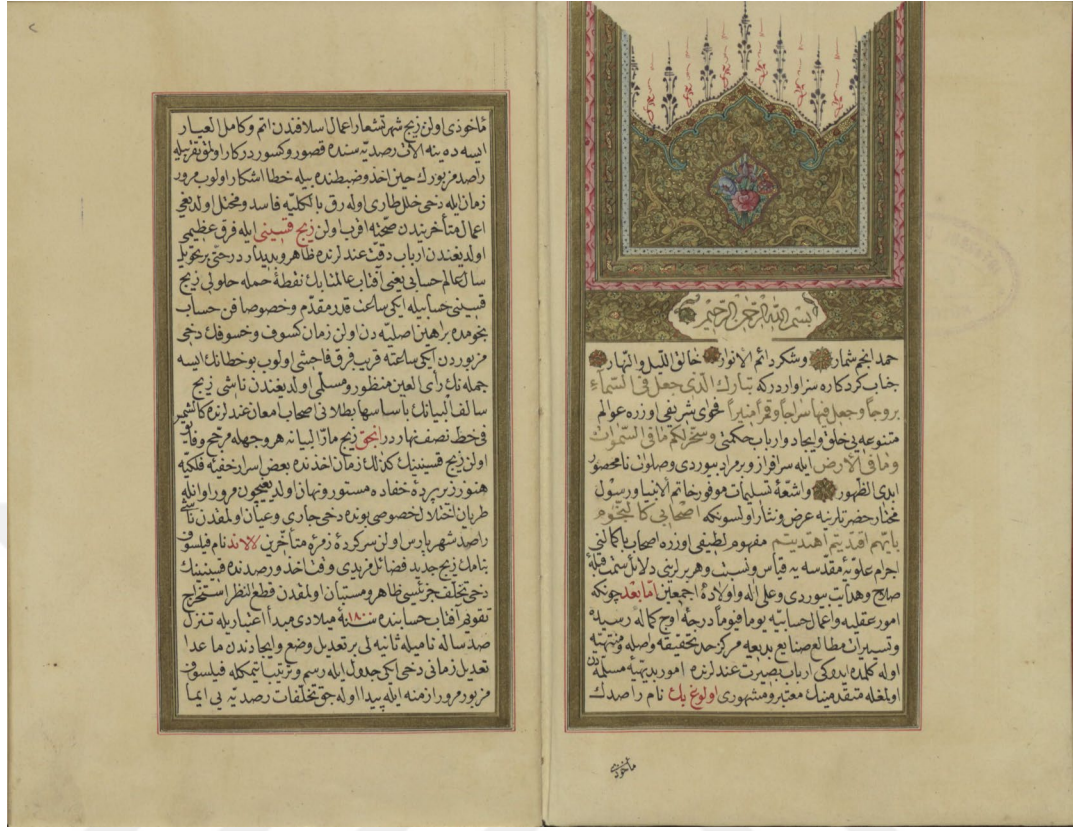 بسم الله الرحمن الرحيم
حمد انجم شمار وشكر دائم الانوار خالق الليل والنهار
جناب كردكاره سزاوار دركه تبارك الذى جعل فى السماء
بروجا وجعل فيها سراجا وقمرا منيرا فحواى شريفى اوزره عوالم
متنوعه يى خلق وايجاد وارباب حكمتى وسخر لكم ما فى السموات
وما فى الارض ايله سرافراز وبرمراد بيوردى وصلوات نامحصور
ابدى الظهور واشعۀ تسليمات موفور خاتم الانبيا ورسول
مختار حضرتلرينه عرض ونثار اولسونكه اصحابى كالنجوم
بايهم اقتديتم اهتديتم مفهوم لطيفى اوزره اصحاب باكمالنى
اجرام علويۀ مقدسه يه قياس ونسبت وهر برلرينى دلائل سمت قبلۀ
صلاح وهدايت بيوردى وعلى اله واولاده اجمعين اما بعد چونكه
امور عقليه واعمال حسابيه يوما فيوما درجۀ اوج كماله رسيده
وتسييرات مطالع صنايع بديعه مركز حد تحقيقه وصله ومنتهيه
اوله كلمده ايدوكى ارباب بصيرت عندلرنده امور بديهيۀ مسلمه دن
اولمغله متقدمينك معتبر ومشهورى اولوغ بك نام راصدك
مأخوذى
مأخوذى اولن زيج شهرتشعار اعمال اسلافندن اتم وكامل العيار
ايسه ده ينه الات رصديه سنده قصور وكسور دركار اولمق تقريبيله
راصد مزبورك حين اخذ وضبطنده بيله خطا اشكار اولوب مرور
زمان ايله دخى خلل طارى اوله رق بالكليه فاسد ومختل اولديغى
اعمال متأخريندن صحته اقرب اولن زيج قسينى ايله فرق عظيمى
اولديغندن ارباب دقت عندلرنده ظاهر وبديدار در حتى بر تحويل
سال عالم حسابى يعنى افتاب عالمتابك نقطۀ حمله حلولى زيج
قسينى حسابيله ايكى ساعت قدر مقدم وخصوصا فن حساب
نجومده براهين اصليه دن اولن زمان كسوف وخسوفك دخى
مزبوردن ايكى ساعته قريب فرق فاحشى اولوب بو خطانك ايسه
جمله نك رأى العين منظور ومسلمى اولديغندن ناشى زيج
سالف البيانك باساسها بطلانى اصحاب معان عندلرنده كالشمس
فى خط نصف نهار در انجق زيج مار البيانه هر وجهله مرجح وفايق
اولن زيج قسينينك كذلك زمان اخذنده بعض اسرار خفيۀ فلكيه
هنوز زير پردۀ خفاده مستور ونهان اولديغيچون مرور اوانله
طريان اختلال خصوصى بونده دخى جارى وعيان اولمقدن ناشى
راصد شهر پارس اولن سركردۀ زمرۀ متأخرين لالاند نام فيلسوف
بنامك زيج جديد فضائل مزيدى وقت اخذ ورصدنده قسينينك
دخى تخلف جزئيسى ظاهر ومستبان اولمقدن قطع النظر استخراج
تقويم افتاب حسابنده سنۀ ١٨٠٠ ميلادى مبدأ اعتباريله تنزل
صد ساله ناميله ثانيه لى بر تعديل وضع وايجادندن ماعدا
تعديل زمانى دخى ايكى جدول ايله رسم وترتيب ايتمكله فيلسوف
مزبور مرور ازمنه ايله پيدا اوله جق تخلفات رصديه يى ايما